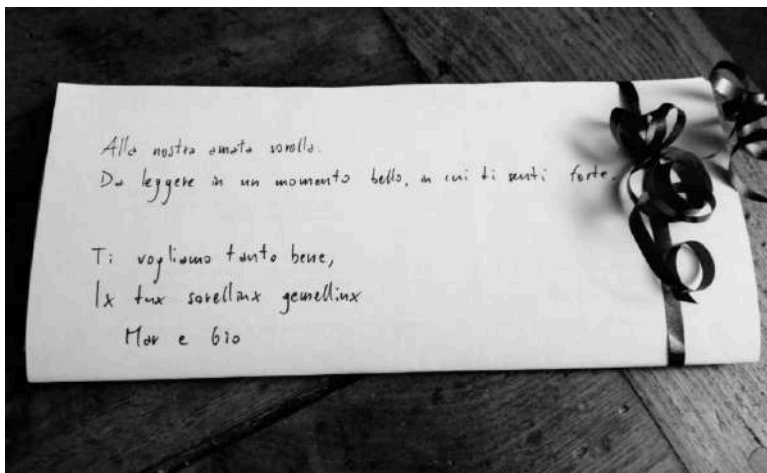 Alla nostra amata sorella.
Da leggere in un momento bello, in cui ti senti forte.
Ti vogliamo tanto bene,
lx tux sorellinx gemellinx
Mar e Gio